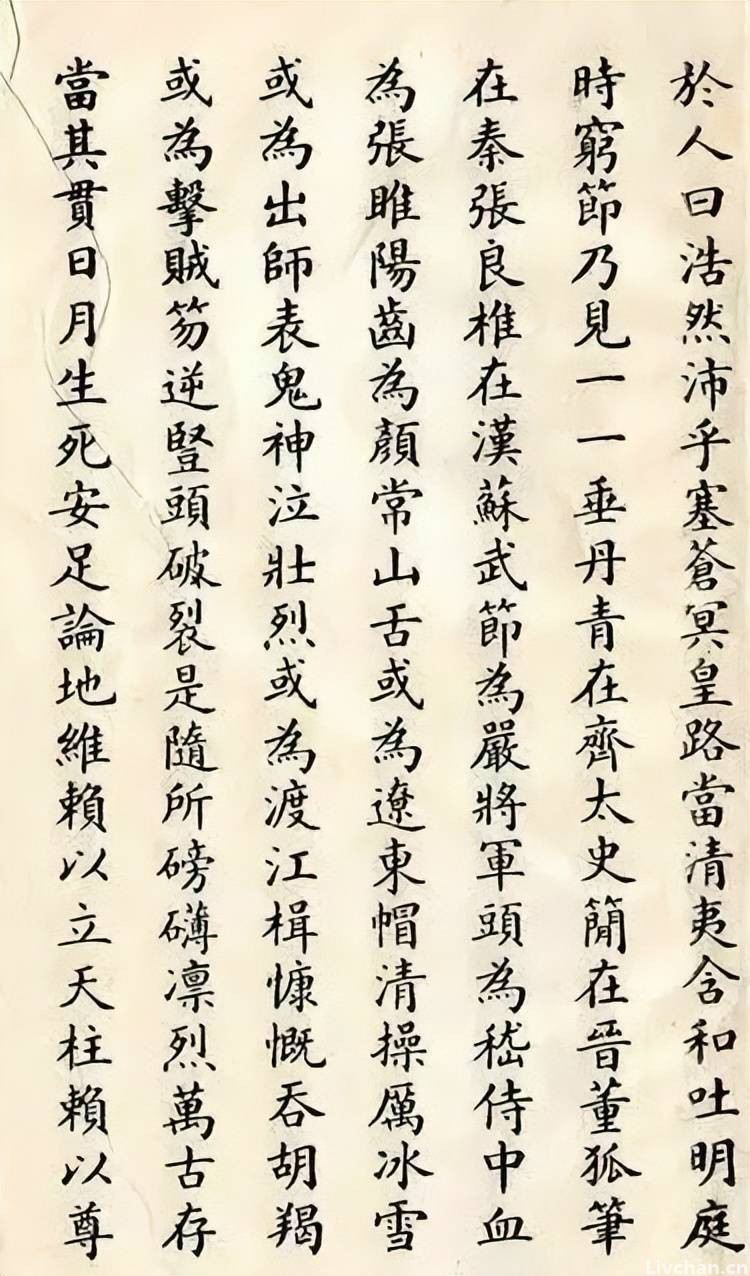 於人曰浩然沛乎塞蒼冥皇路當清夷含和吐明庭
時窮節乃見一一垂丹青在齊太史簡在晉董狐筆
在秦張良椎在漢蘇武節為嚴將軍頭為嵇侍中血
為張睢陽齒為顏常山舌或為遼東帽清操厲冰雪
或為出師表鬼神泣壯烈或為渡江楫慷慨吞胡羯
或為擊賊笏逆豎頭破裂是隨所磅礴凛烈萬古存
當其貫日月生死安足論地維賴以立天柱賴以尊
Livchan.cn